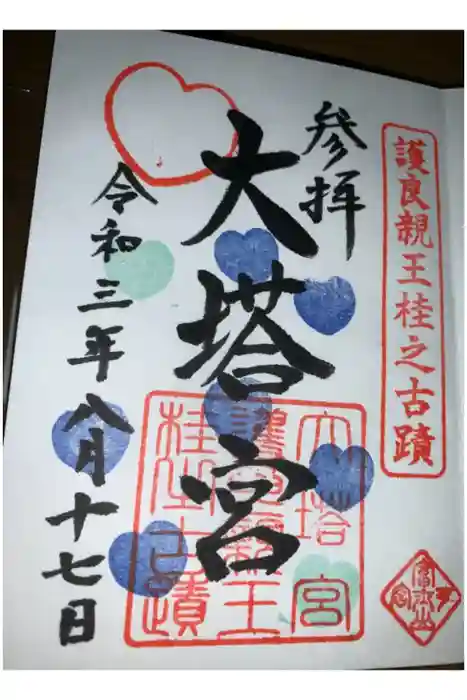 護良親王桂之古蹟
参拝
大塔宮
大塔宮
護良親王
桂之古蹟
令和三年八月十七日